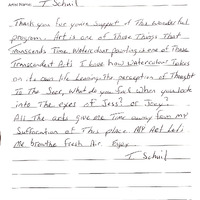 Artist Name: T Schuil
Thank you for youre support of This wonderful
program. Art is one of Those Things That
Transcends Time. Watercolour painting is one of Those
Transcendent Arts I Love how Watercolour Takes
on its own life Leaving The perception of Thought
To The Seer, What do you feel when you look
into The eyes of Jess? or Joey?
All The arts give me Time away from my
Suffocation of This place. My Art Lets
Me breathe Fresh Air. Enjoy.
T Schuil